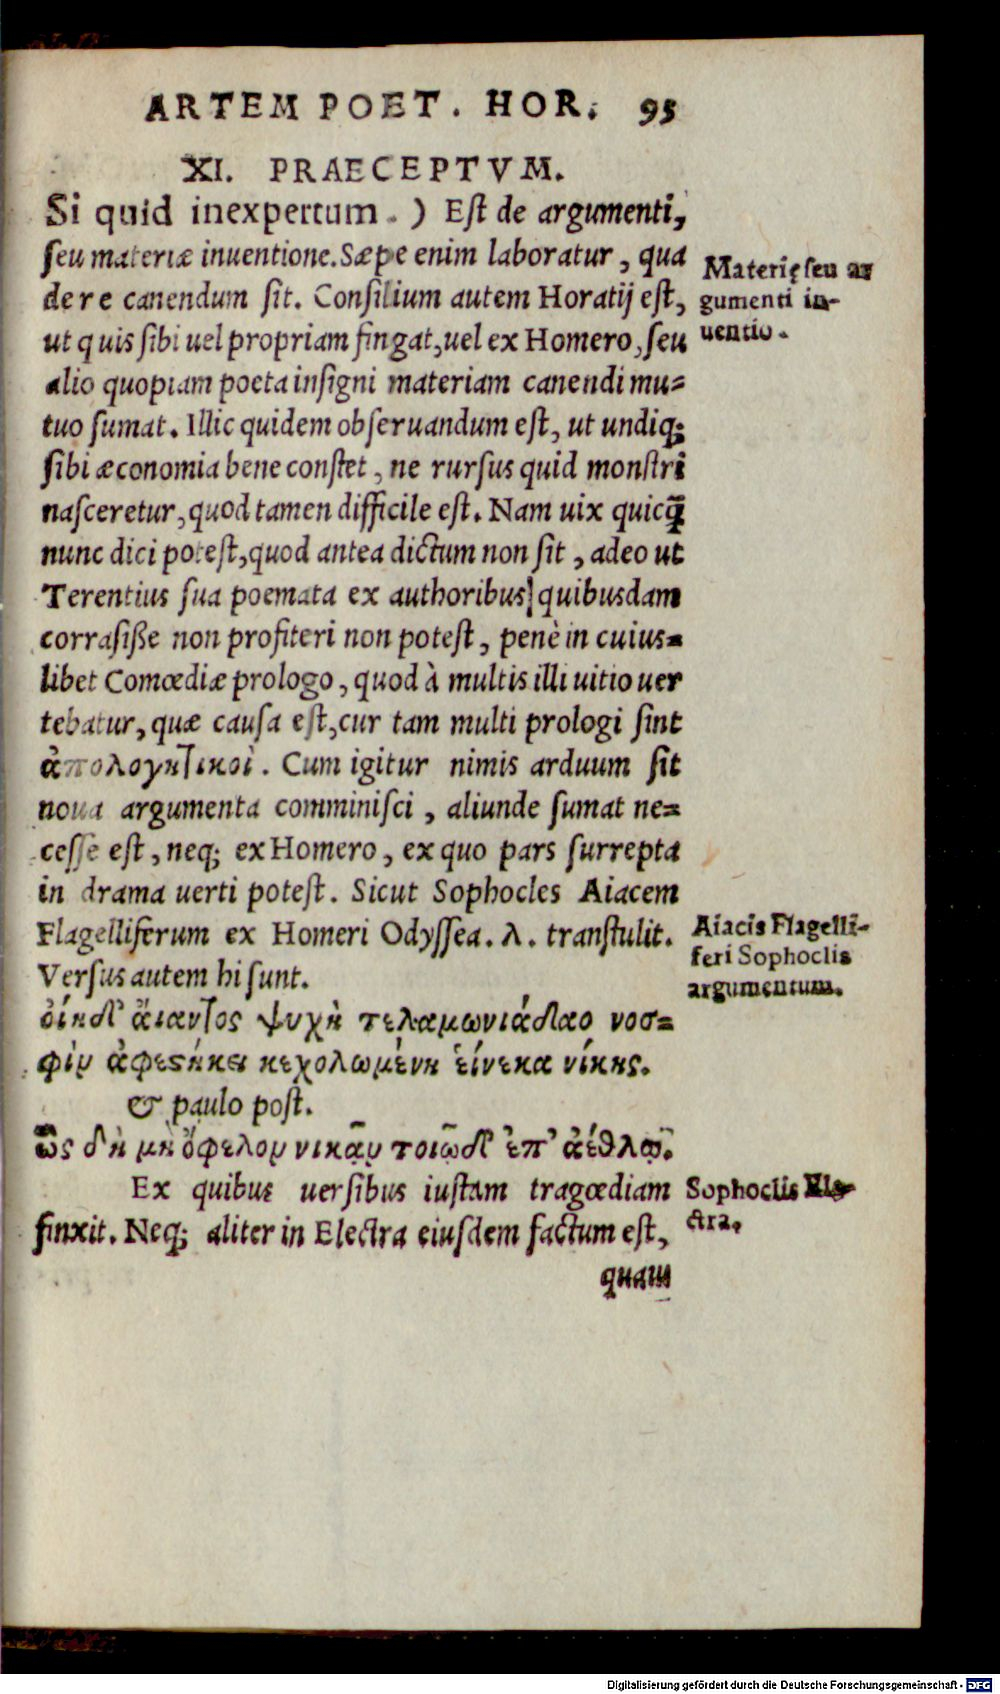 ARTEM POET. HOR. 95
XI. PRAECEPTVM.
Si quid inexpertum.) Est de argumenti,
seu materiæ inuentione. Sæpe enim laboratur, qua
de re canendum sit. Consilium autem Horatij est,
ut quis sibi uel propriam fingat, uel ex Homero, seu
alio quopiam poeta insigni materiam canendi mu=
tuo sumat. Illic quidem obseruandum est, ut undiq;
sibi æconomia bene constet, ne rursus quid monstri
nasceretur, quod tamen difficile est. Nam uix quicq̃
nunc dici potest, quod antea dictum non sit, adeo ut
Terentius sua poemata ex authoribus quibusdam
corrasiße non profiteri non potest, penè in cuius=
libet Comœdiæ prologo, quod à multis illi uitio uer
tebatur, quæ causa est, cur tam multi prologi sint
ἀπολογητικοὶ. Cum igitur nimis arduum sit
noua argumenta comminisci, aliunde sumat ne=
cesse est, neq; ex Homero, ex quo pars surrepta
in drama uerti potest. Sicut Sophocles Aiacem
Flagelliferum ex Homeri Odyssea. λ. transtulit.
Versus autem hi sunt.
ὀίηδ' ἄιαντος ψυχὴ τελαμωνιάδαο νοσ=
φὶν ἀφεςήκει κεχολωμένη εἵνεκα νίκης.
& paulo post.
ὡς δὴ μὴ ὄφελον νικᾷν τοιῶδ' ἐπ' ἀέθλῳ.
Ex quibus uersibus iustam tragœdiam
finxit. Neq; aliter in Electra eiusdem factum est,
quam
Materię seu ar
gumenti in-
uentio.
Aiacis Flagelli-
feri Sophoclis
argumentum.
Sophoclis Ele-
ctra.
Digitalisierung gefördert durch die Deutsche Forschungsgemeinschaft - DFG